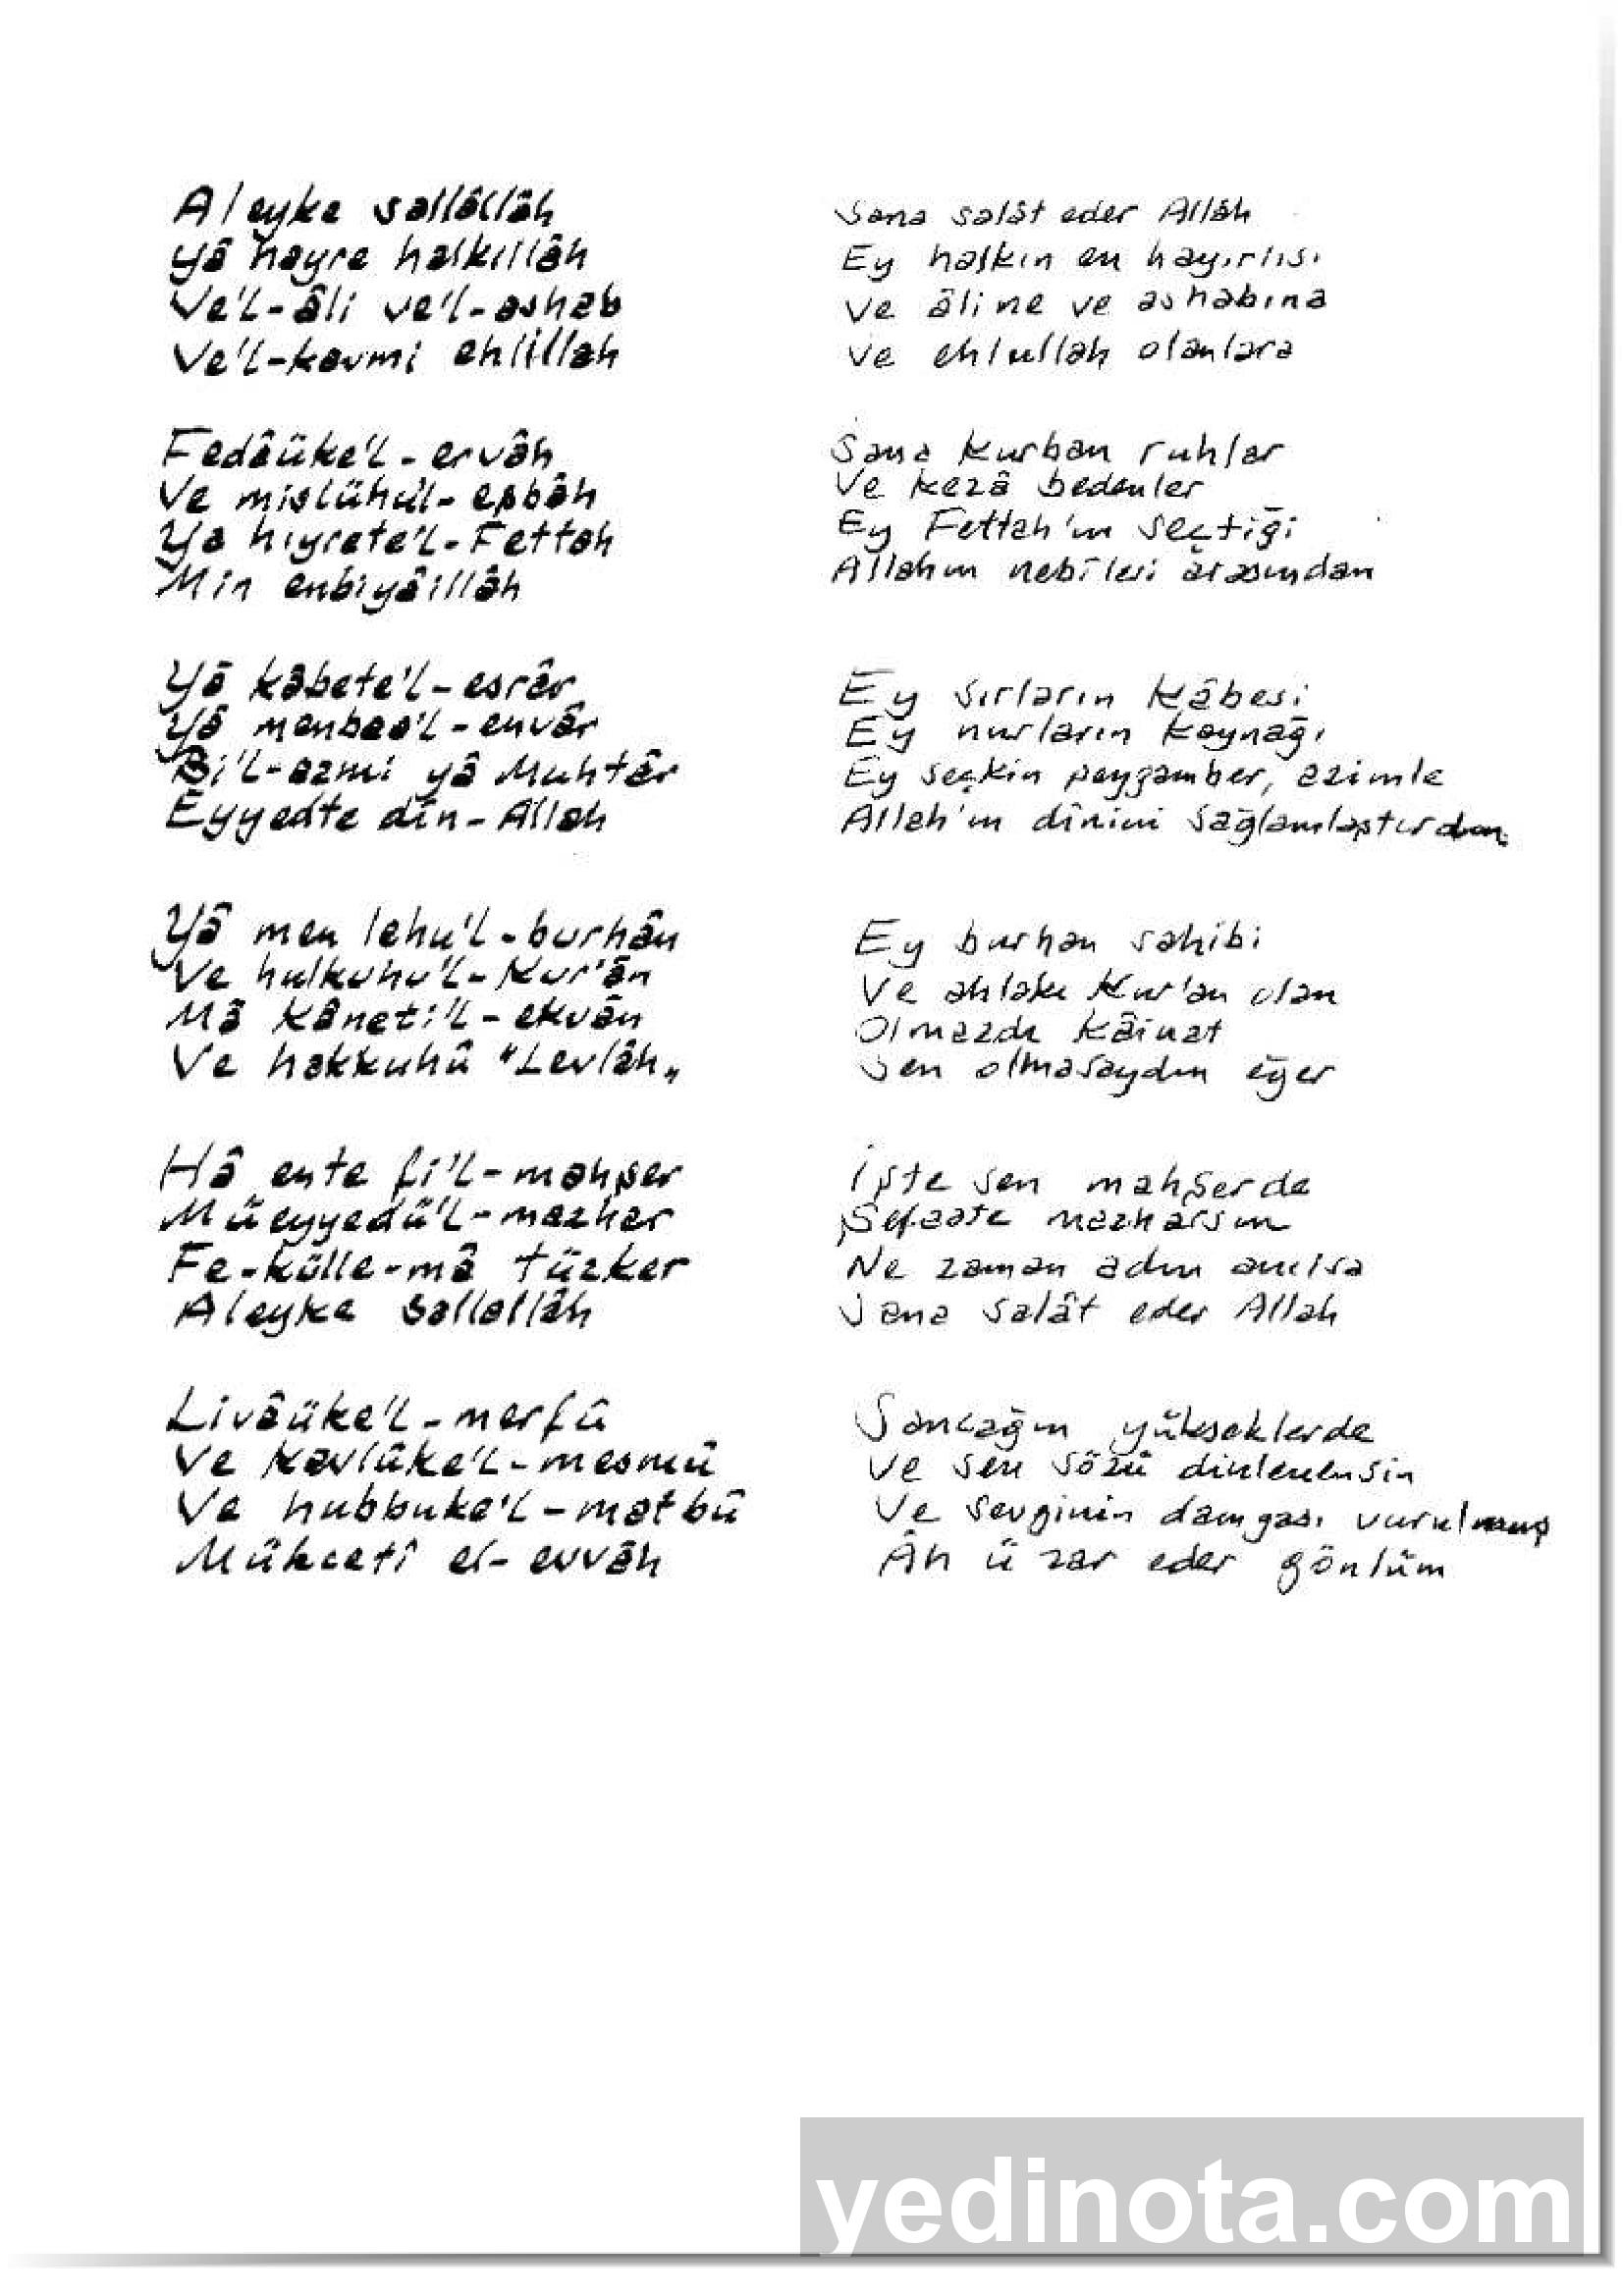 Aleyke sallâllâh
Yâ hayre halkıllâh
Ve'l-âli ve'l-ashab
Ve'l-kavmi ehlillah

Fedâüke'l-ervâh
Ve mislühu'l-eşbâh
Ya hıyrate'l-Fettah
Min enbiyâillâh

Yâ kâbete'l-esrâr
Yâ menbaa'l-envâr
Bi'l-azmi yâ Muhtâr
Eyyedte dîn-Allah

Yâ men lehu'l-burhân
Ve hulkuhu'l-Kur'ân
Mâ kâneti'l-ekvân
Ve hakkuhû "Levlâh"

Hâ ente fi'l-mahşer
Müeyyedü'l-mazhar
Fe-külle-mâ tüzker
Aleyke sallallâh

Livâüke'l-merfû
Ve kavlüke'l-mesmû
Ve hubbuke'l-matbû
Mühcetî el-evvâh

Sana salât eder Allâh
Ey halkın en hayırlısı
Ve âline ve ashabına
Ve ehlullah olanlara

Sana kurban ruhlar
Ve kezâ bedenler
Ey Fettah'ın seçtiği
Allahın nebîleri arasından

Ey sırların Kâbesi
Ey nurların kaynağı
Ey seçkin peygamber, azimle
Allah'ın dînini sağlamlaştırdın

Ey burhan sahibi
Ve ahlakı Kur'an olan
Olmazdı kâinat
Sen olmasaydın eğer

İşte sen mahşerde
Şefaate mazharsın
Ne zaman adın anılsa
Sana salât eder Allah

Sancağın yükseklerde
Ve sen sözü dinlenensin
Ve sevginin damgası vurulmuş
Âh ü zar eder gönlüm

yedinota.com